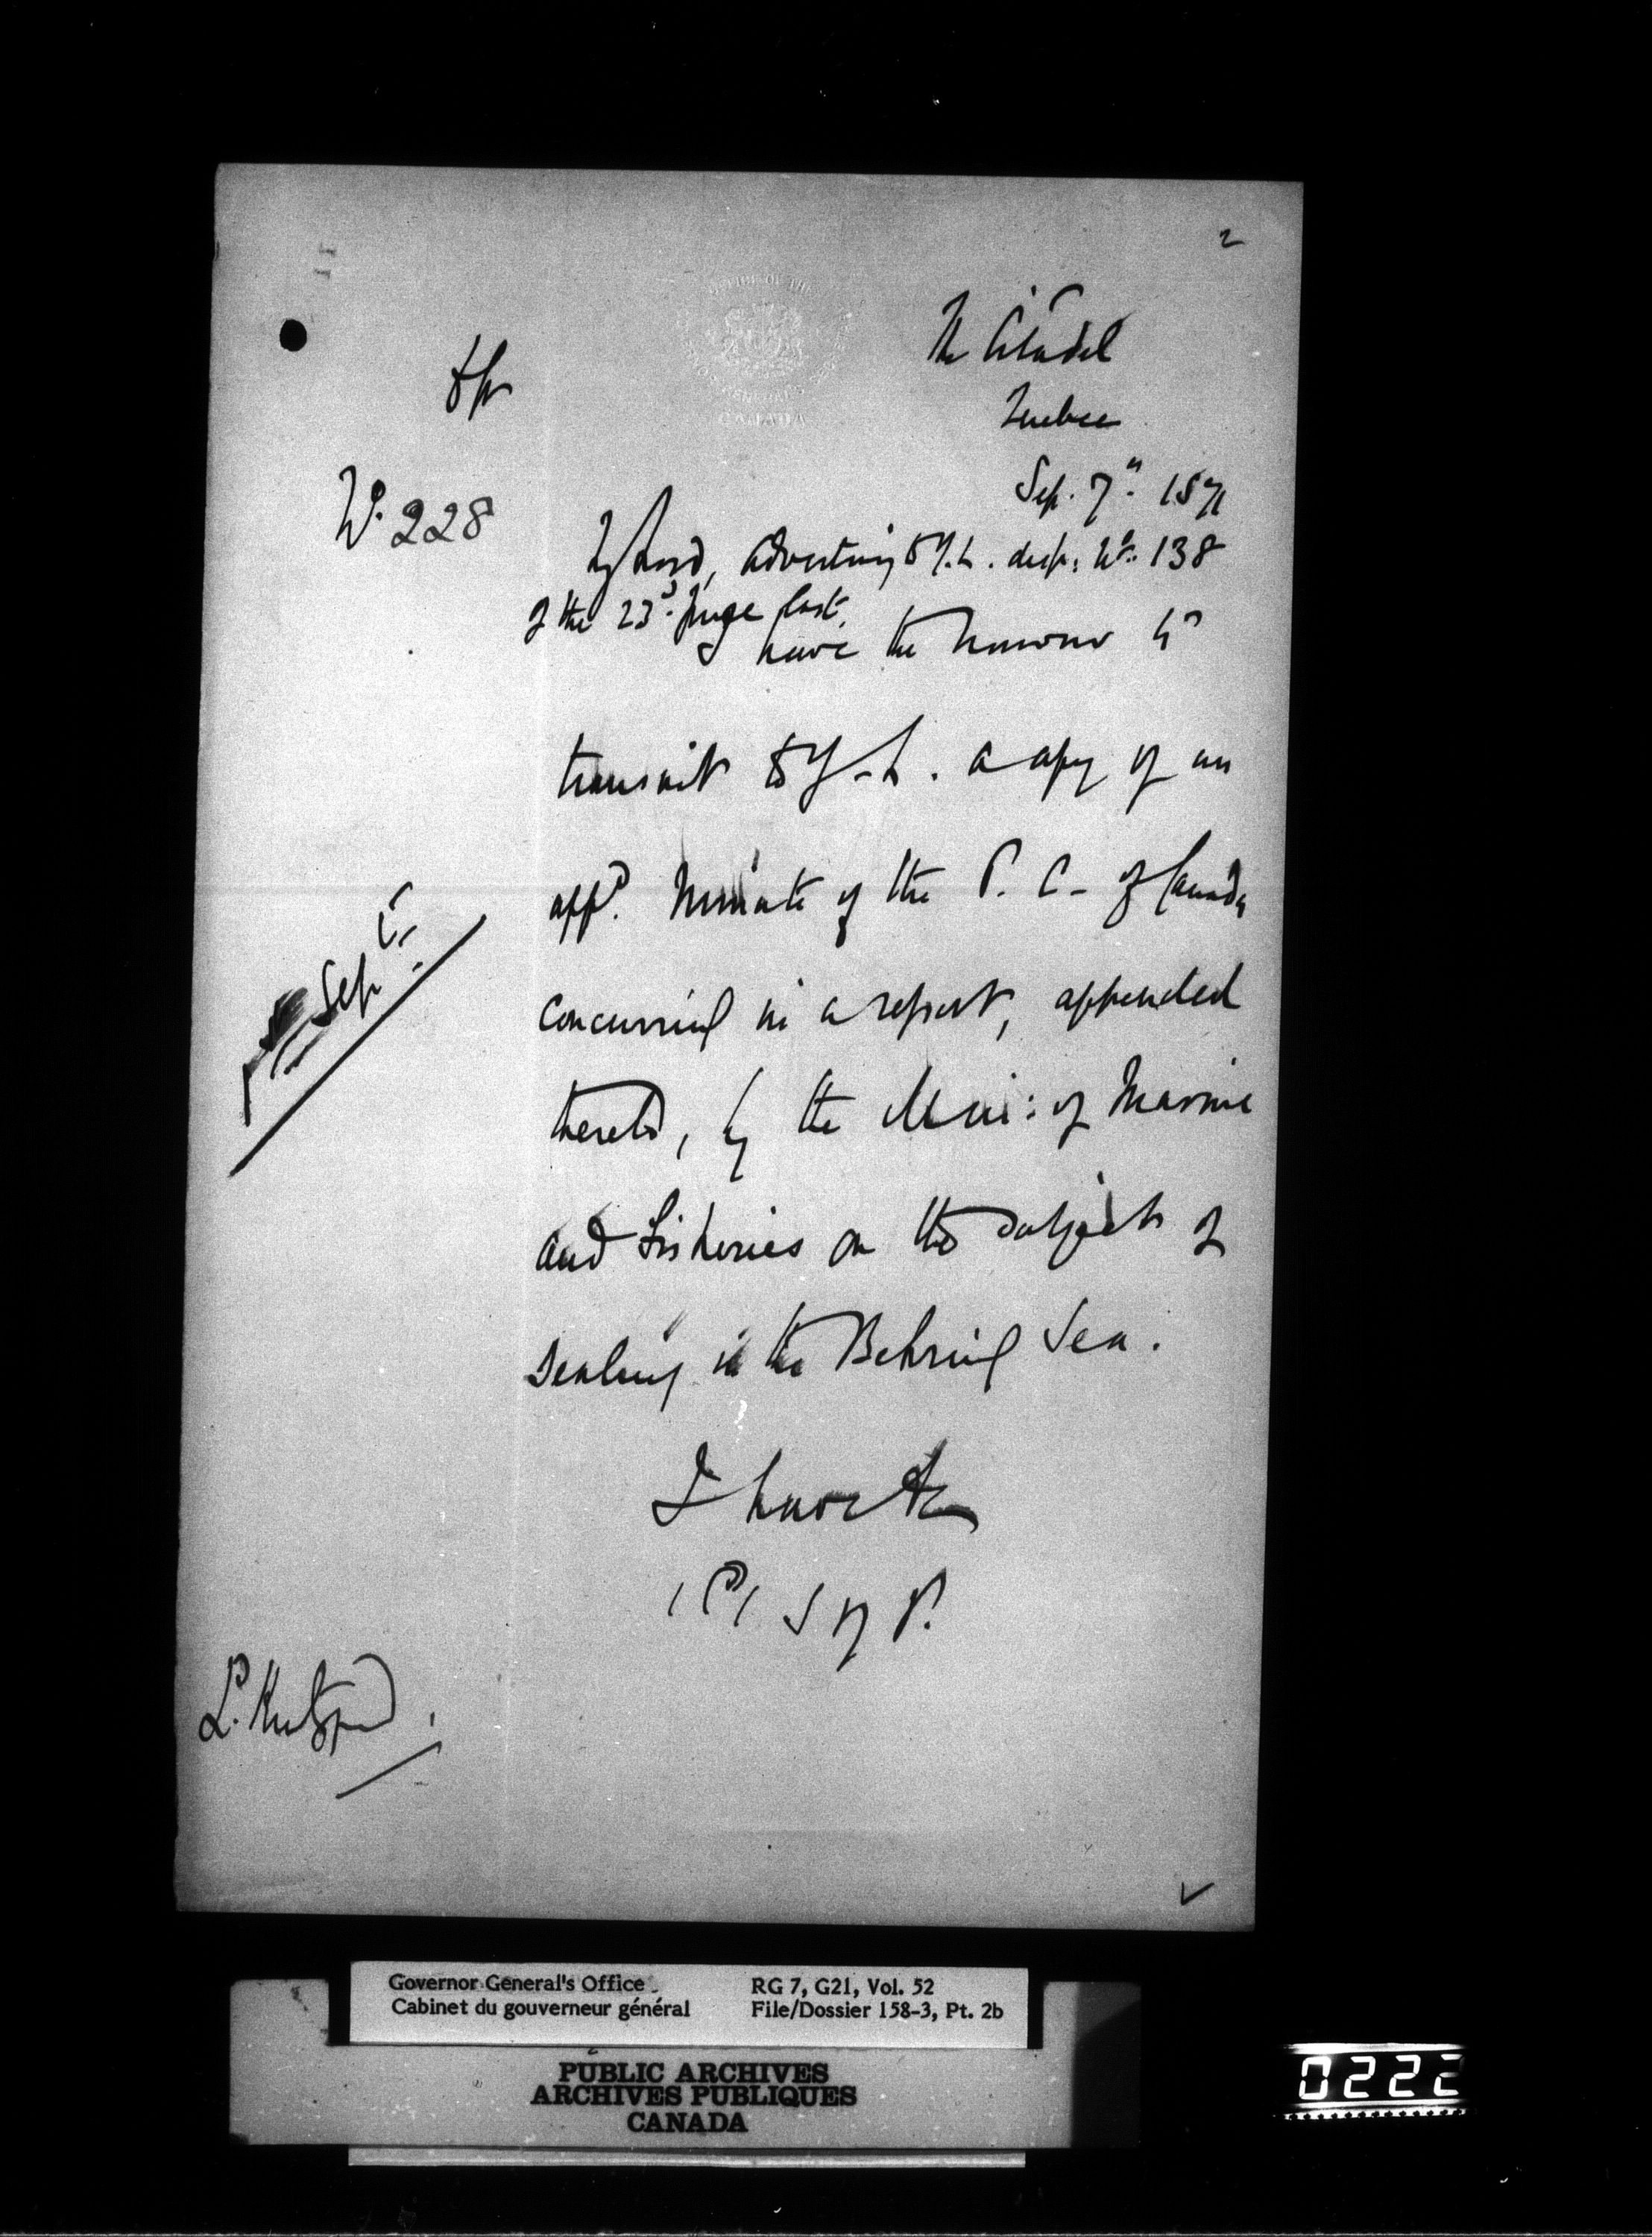 2
OFFICE OF THE
GOVERNOR GENERAL'S SECRETARY
CANADA
The Citadel
Quebec
Sep. 7th 1891
No 228
My Lord, Adverting to Y.L. desp: No: 138
of the 23d June last,
have the honour to
transmit to Y.L. a copy of an
appd. Minute of the P. C. of Canada
concurring in a report, appended
thereto, by the Min: of Marine
and Fisheries on the subject of
Sealing in the Behring Sea.
I have &c
(Sd) S of P.
L. Knutsford.
Sep
Governor General's Office RG 7, G21, Vol. 52
Cabinet du gouverneur général File/Dossier 158-3, Pt. 2b
PUBLIC ARCHIVES
ARCHIVES PUBLIQUES
CANADA
0222